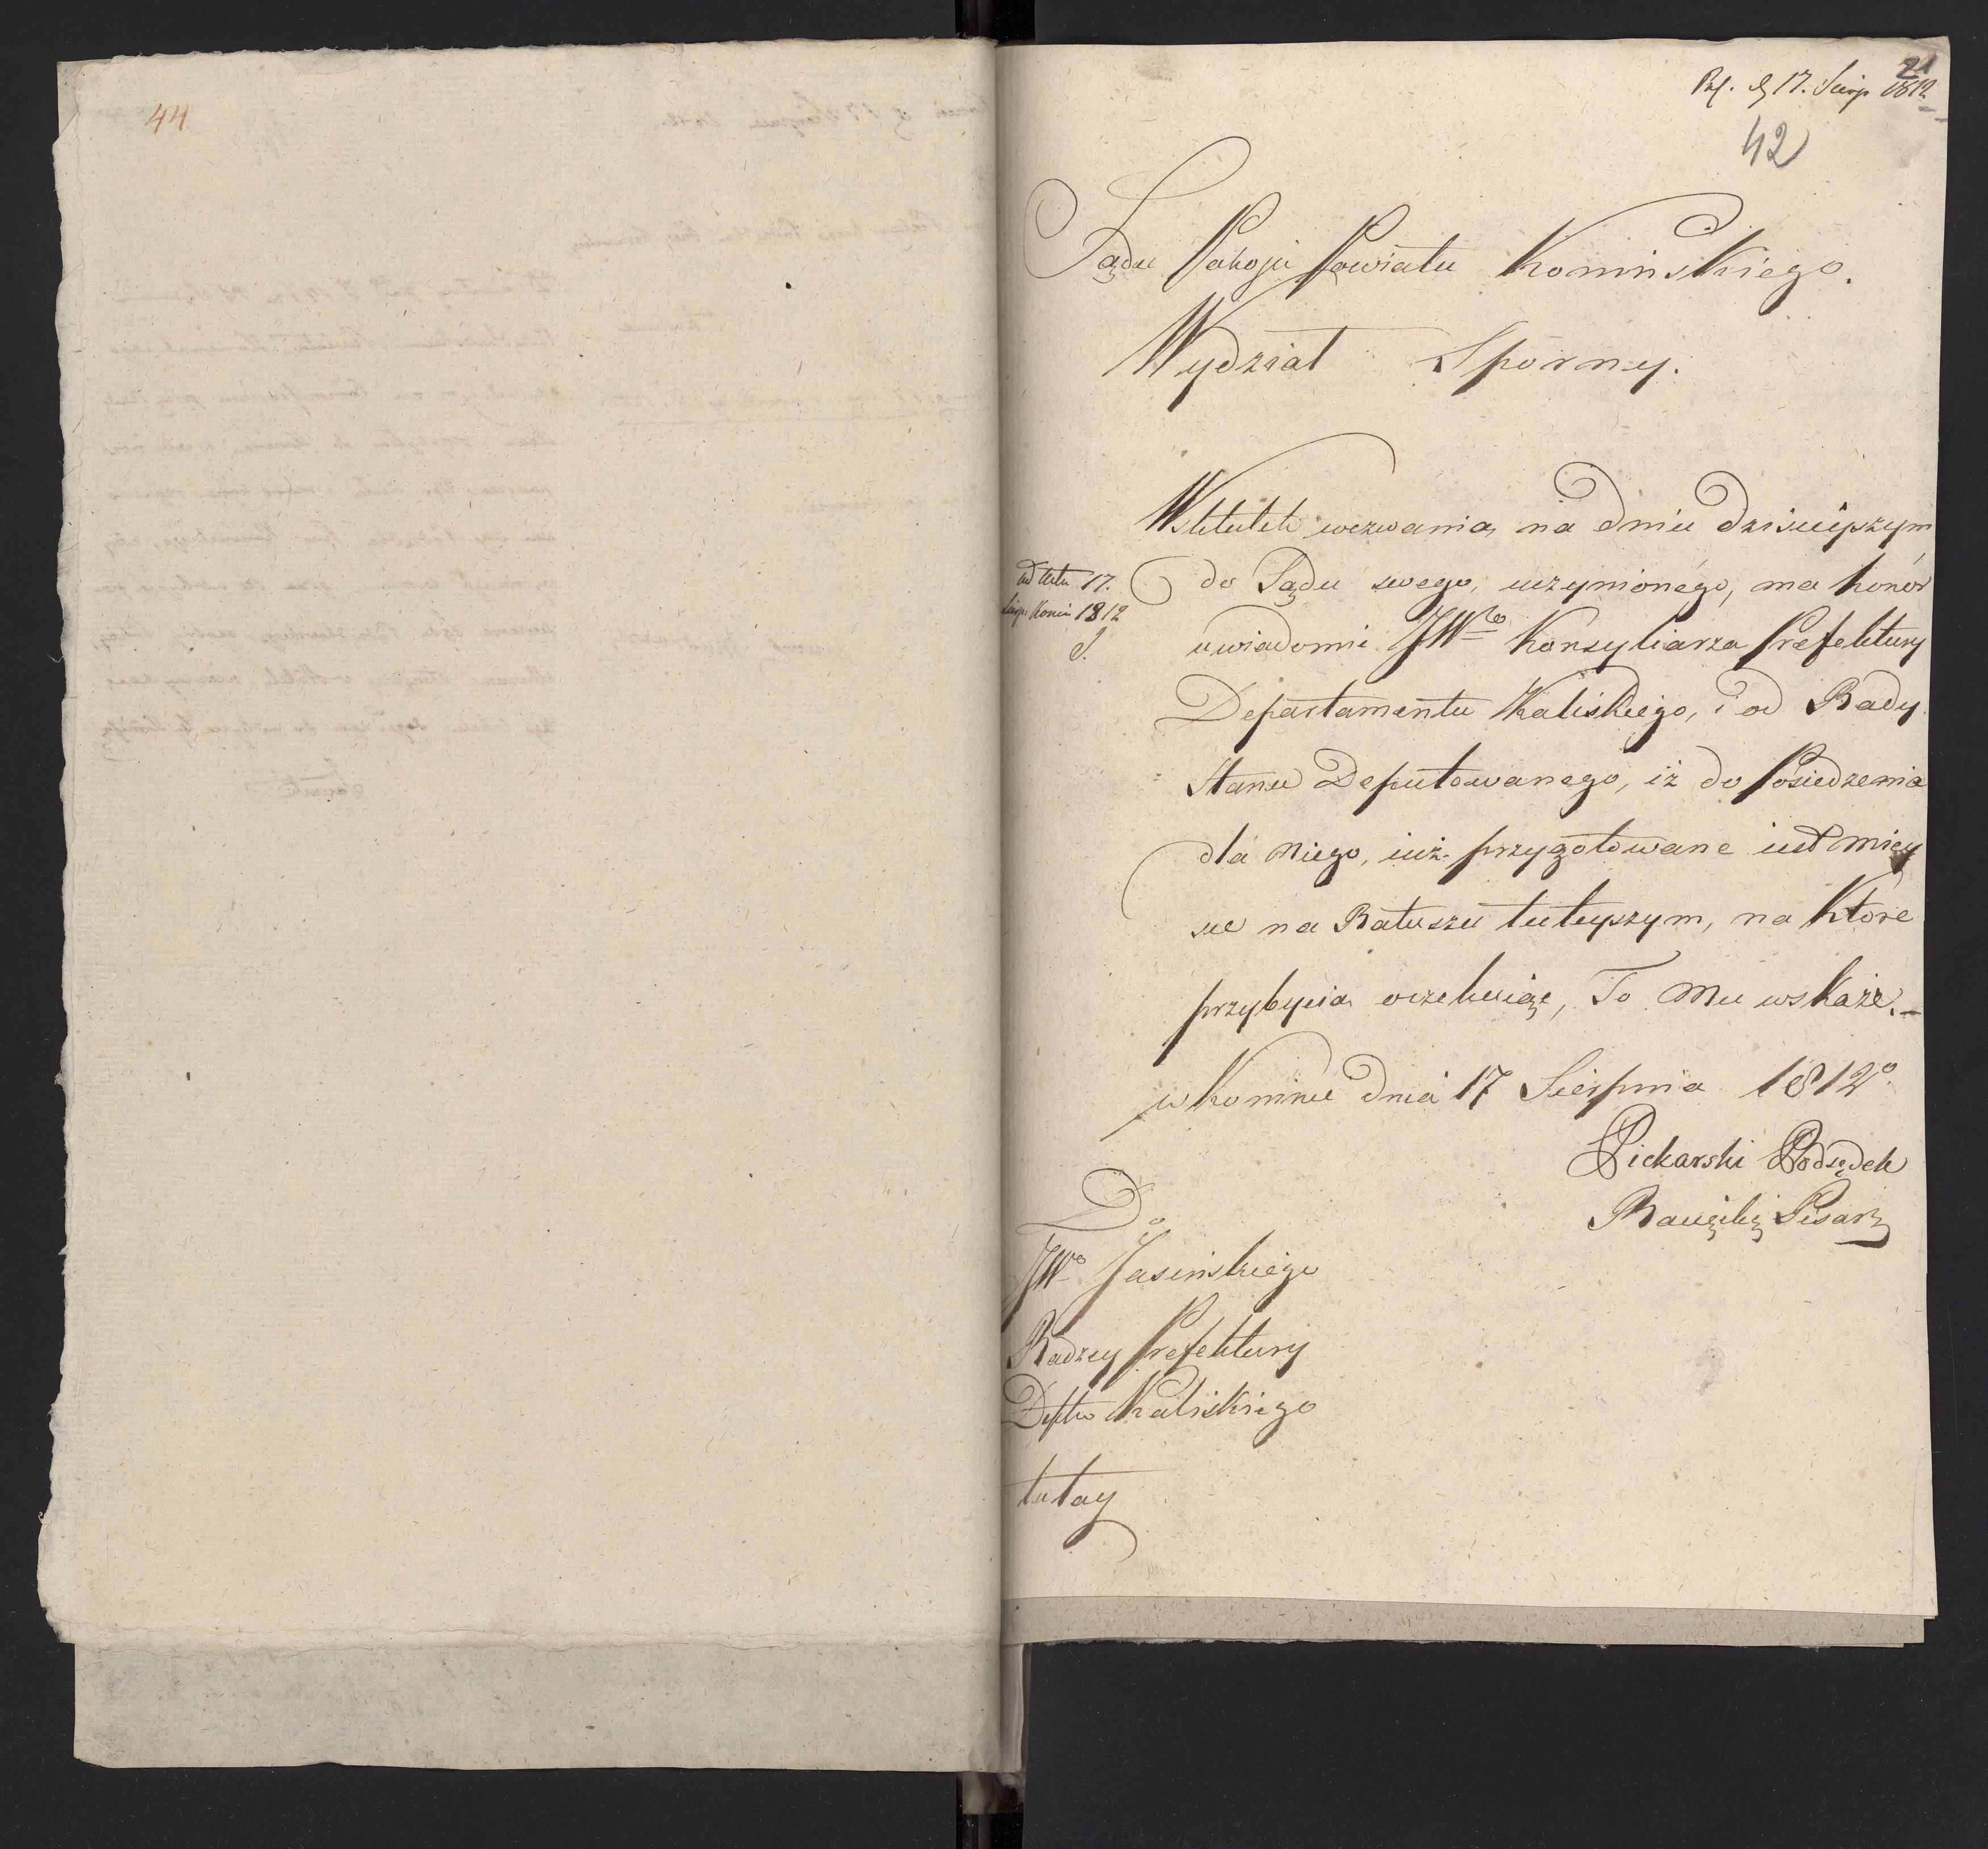 44
21
d 17. Sierp 1812.
42
Sądu Pokoju Powiatu Koninskiego.
Wydział Sporny.
Wskutek wezwania, na dniu dzisieyszym
do Sądu swego, uczynionego, ma honor
uwiadomić JWo Konsyliarza Prefektury
Departamentu Kaliskiego, i od Rady
Stanu Deputowanego, iż do Posiedzenia
dla niego, iuż przygotowane iest miey
sce na Ratuszu tuteyszym, na które
przybycia oczekuiąc, To mu wskaże.
w Koninie dnia 17 Sierpnia 1812o
ad 17.
Sierp: Konin 1812
Piekarski Podsędek
Pisarz
Do
JWo Jasińskiego
Radzcy Prefektury
Dptu Kaliskiego
tutay